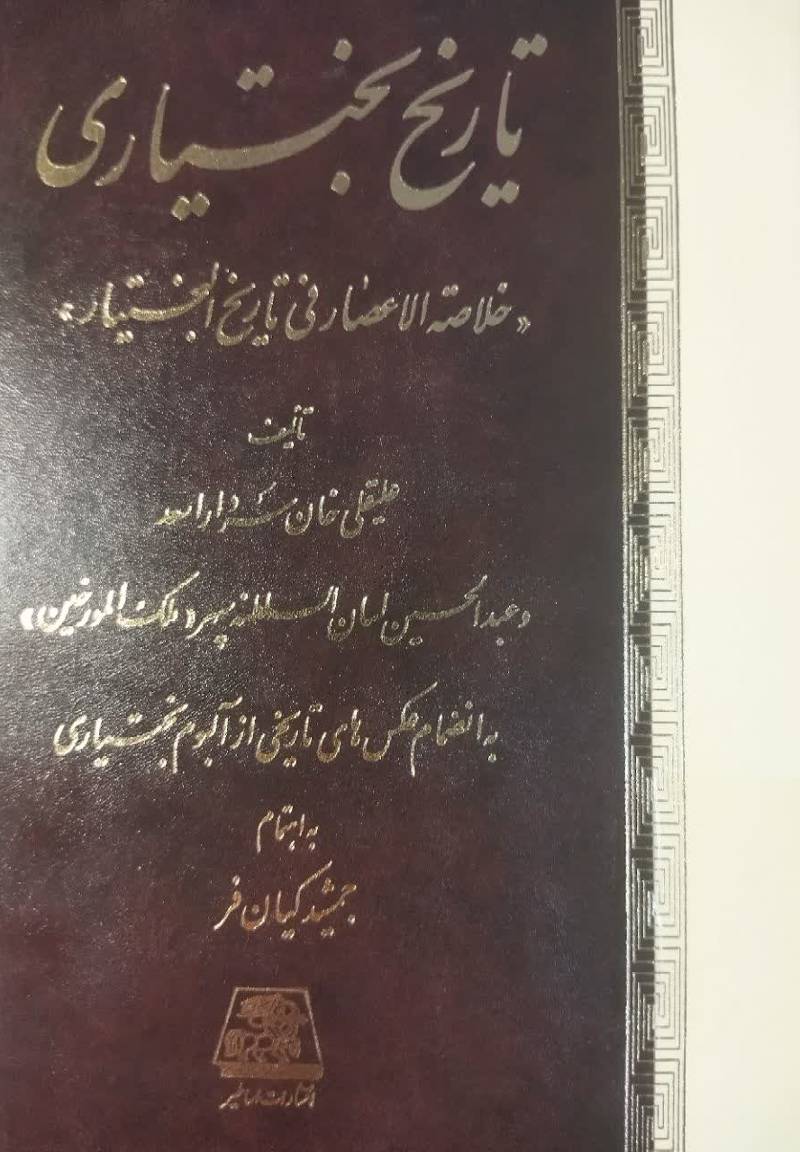 تاریخ بختیاری
«خلاصة الاعصار فی تاریخ البختیار»
تألیف
علیقلی خان سردار اسعد
و عبدالحسین لسان السلطنه سپهر «ملک المورخین»
به انضمام عکس های تاریخی از آلبوم بختیاری
به اهتمام
جمشید کیان فر
انتشارات اساطیر